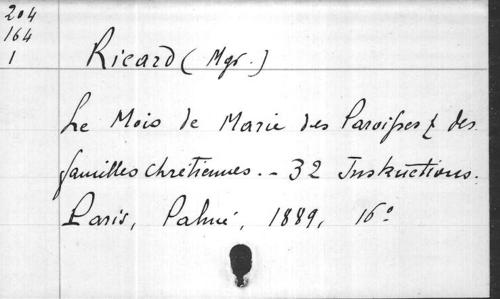 204
164
1
Ricard (Mgr.)
Le Mois de Marie des Paroisses & des
familles chrétiennes. - 32 Instructions.
Paris, Palmé, 1889, 16º